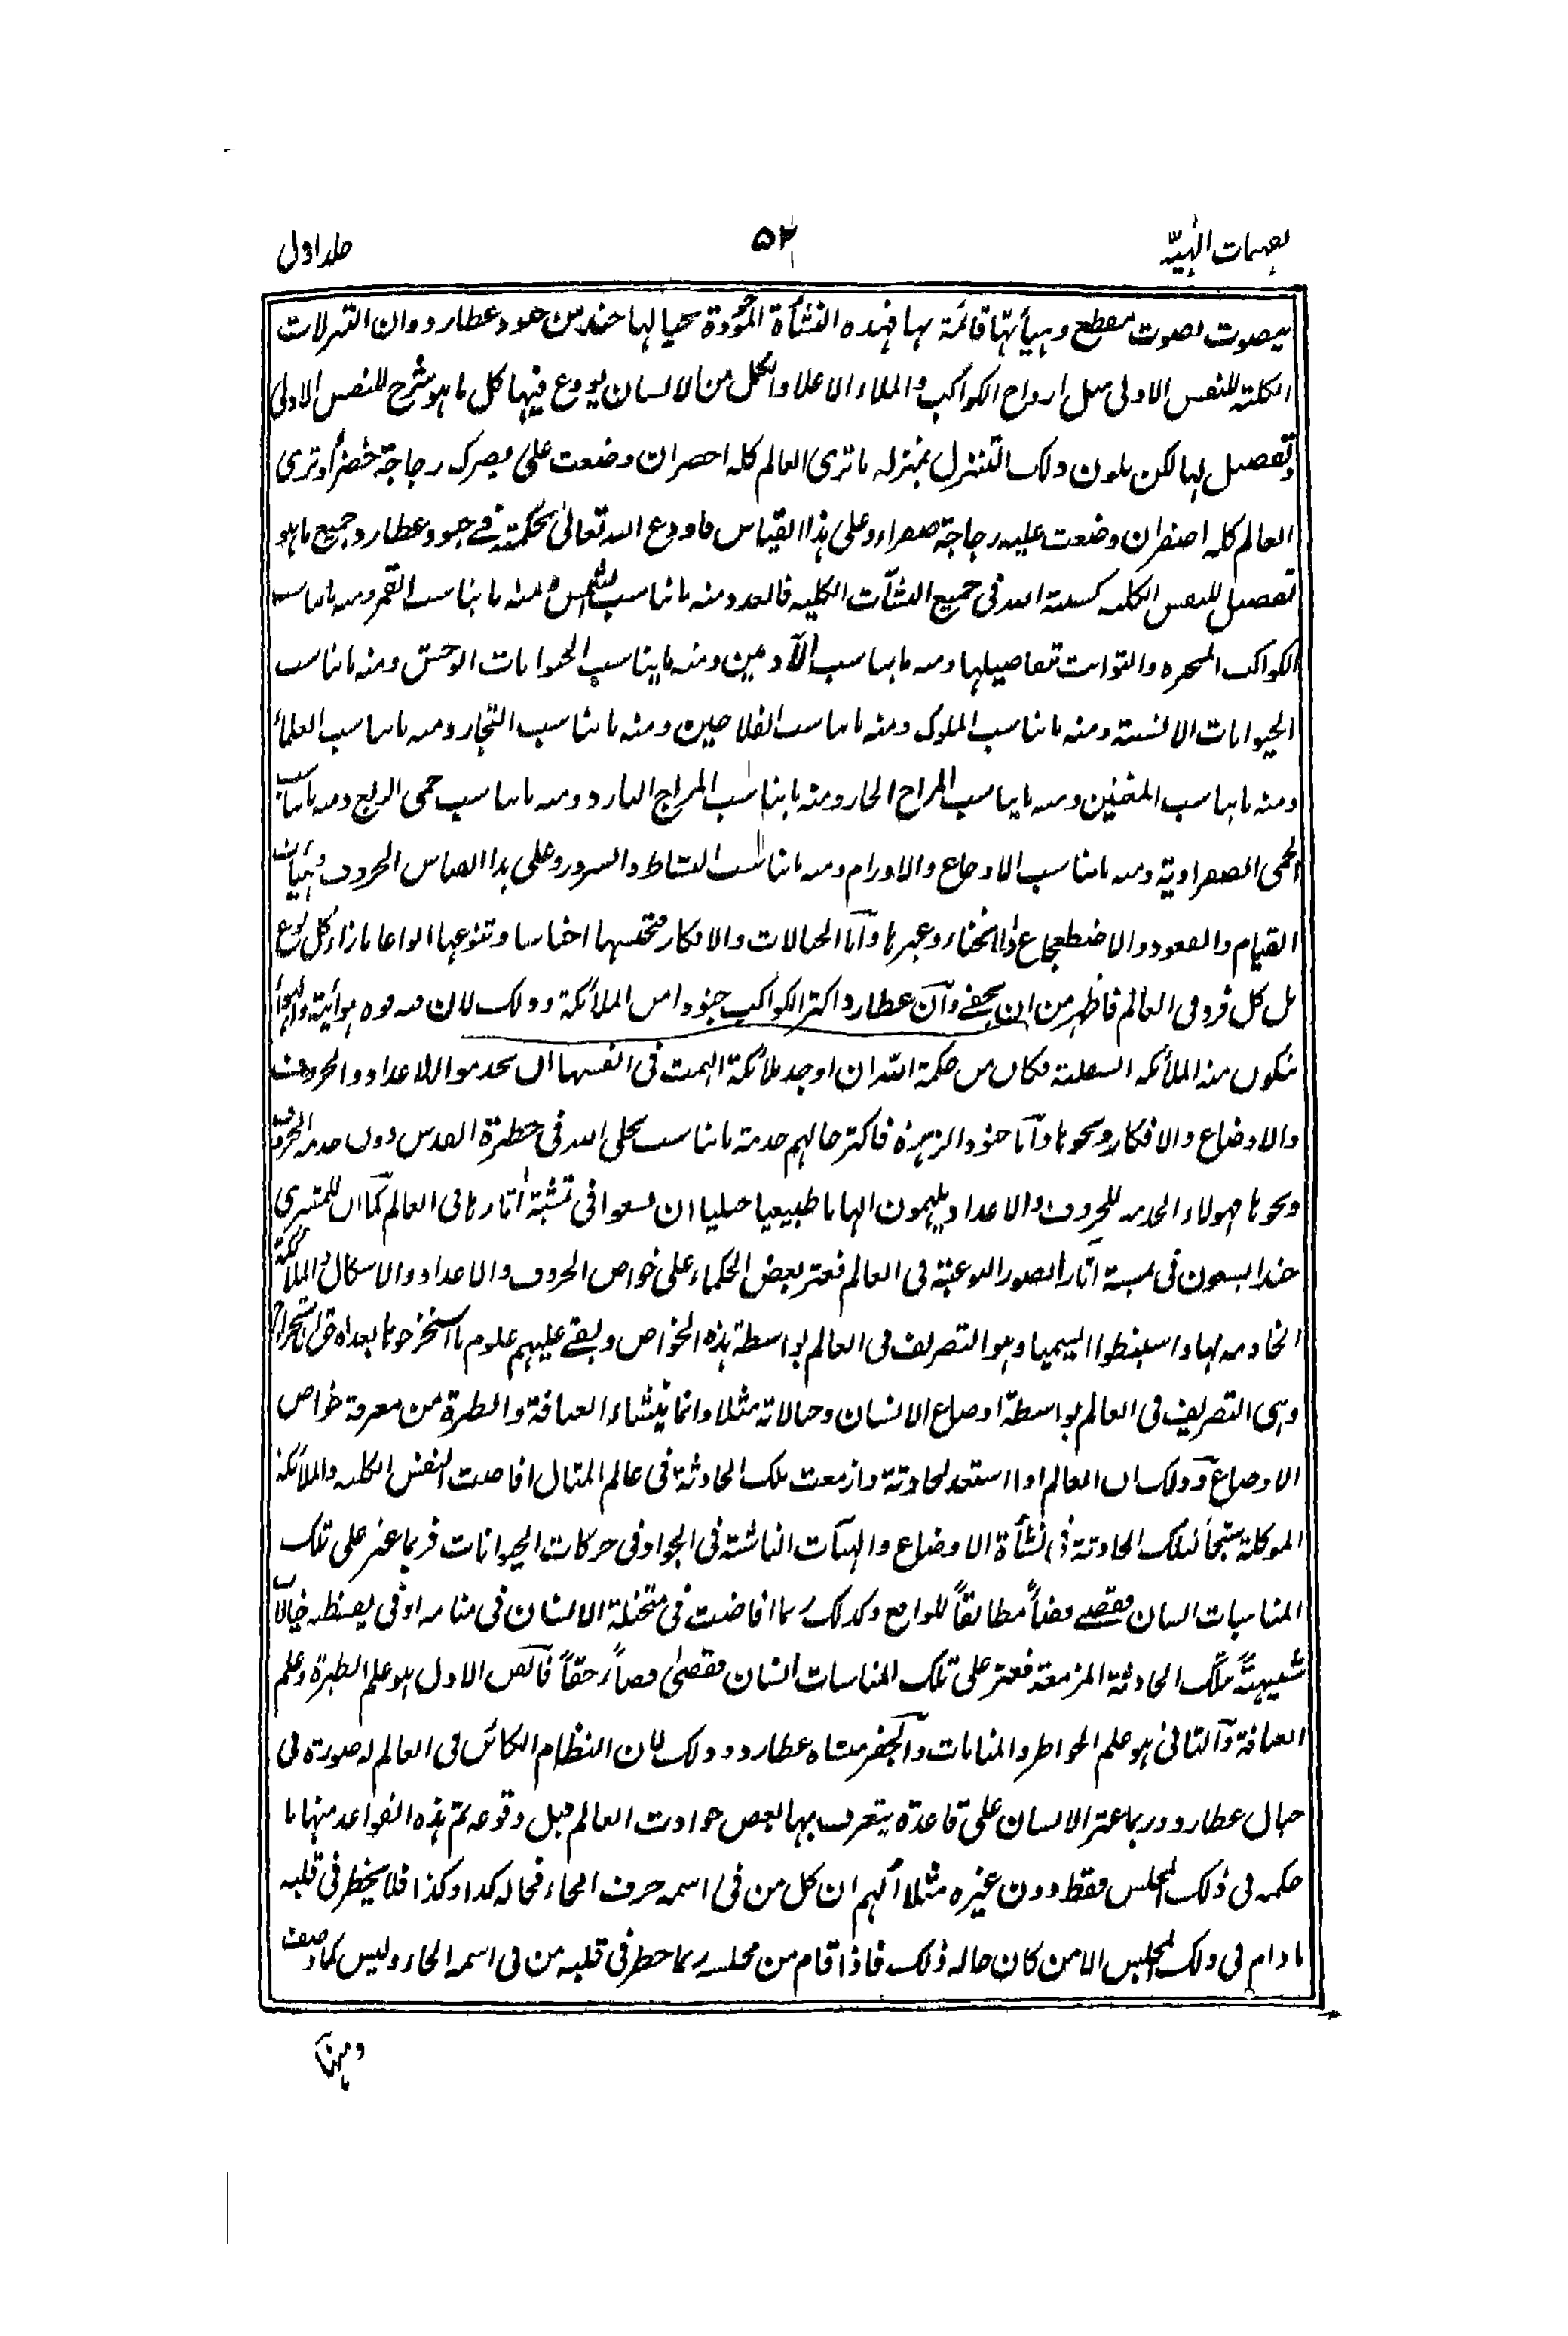 تفہیمات الٰہیّہ
۵۲
جلد اول
بصوت مقطع وہیأتہا قائمۃ بہا فہذہ النشأۃ الموجودۃ بحیالہا جند من جنود عطارد وان التنزلات
الکلیۃ للنفس الاولی مثل ارواح الکواکب والملاء الاعلا والکمل من الانسان یودع فیہا کل ما ہو شرح للنفس الاولی
وتفصیل لہا لکن بلون ذلک التنزل بمنزلہ ما تری العالم کلہ اخضر ان وضعت علی بصرک زجاجۃ خضراء وتری
العالم کلہ اصفر ان وضعت علیہ زجاجۃ صفراء وعلی ہذا القیاس فاودع اللہ تعالیٰ بحکمتہ فی جنود عطارد جمیع ما ہو
تفصیل للنفس الکلیہ کسنۃ اللہ فی جمیع النشآت الکلیہ فالعدد منہ ما یناسب الشمس ومنہ ما یناسب القمر ومنہ ما یناسب
الکواکب المتحیرہ والثوابت تفاصیلہا ومنہ ما یناسب الآدمیین ومنہ ما یناسب الحیوانات الوحش ومنہ ما یناسب
الحیوانات الانسیۃ ومنہ ما یناسب الملوک ومنہ ما یناسب الفلاحین ومنہ ما یناسب التجار ومنہ ما یناسب العلماء
ومنہ ما یناسب المغنین ومنہ ما یناسب المزاج الحار ومنہ ما یناسب المزاج البارد ومنہ ما یناسب حمی الربع ومنہ ما یناسب
الحمی الصفراویۃ ومنہ ما یناسب الاوجاع والاورام ومنہ ما یناسب النشاط والسرور وعلی ہذا القیاس الحروف وہیآت
القیام والقعود والاضطجاع والانحناء وغیرہا وامّا الخیالات والافکار فتجنسہا اجناسا وتنوعہا انواعا بازاء کل نوع
بل کل فرد فی العالم فاظہر من ان یخفے وان عطارد اکثر الکواکب جنودا من الملائکۃ وذلک لان فیہ قوہ ہوائیۃ
یتکون منہ الملائکہ السفلیۃ فکان من حکمۃ اللہ ان اوجد ملائکۃ الہمت فی انفسہا ان یخدموا الاعداد والحروف
والاوضاع والافکار ونحوہا وامّا جنود الزہرۃ فاکثر حالہم خدمۃ ما یناسب تجلی اللہ فی حظیرۃ القدس دون خدمۃ الحروف
ونحوہا فہولاء الخدمہ للحروف والاعداد یلہمون الہاما طبیعیا جبلیا ان یسعوا فی تمشیۃ آثارہا فی العالم کما ان للمشتری
جندا یسعون فی تمشیۃ آثار الصور النوعیۃ فی العالم فعثر بعض الحکماء علی خواص الحروف والاعداد والاشکال والملائکۃ
الخادمہ لہا واستنبطوا السیمیا وہو التصریف فی العالم بواسطۃ ہذہ الخواص وبقے علیہم علوم ما استخرجوہا بعد
وہی التصریف فی العالم بواسطۃ اوضاع الانسان وحالاتہ مثلا وانما ینشاء العیافۃ والطیرۃ من معرفۃ خواص
الاوضاع وذلک ان العالم اذا استعد لحادثۃ وازمعت تلک الحادثۃ فی عالم المثال افاضت النفس الکلیہ والملائکۃ
الموکلۃ شبحاً لتلک الحادثۃ فی نشأۃ الاوضاع والہیآت الناشئۃ فی الجو او فی حرکات الحیوانات فربما عثر علی تلک
المناسبات انسان فقصے قصاً مطابقاً للواقع وکذلک ربما افاضت فی متخیلۃ الانسان فی منامہ او فی یقظتہ خیالاً
شبیہۃً بتلک الحادثۃ المزمعۃ فعثر علی تلک المناسبات انسان فقصیٰ قصاً حقاً فالقص الاول ہو علم الطیرۃ وعلم
العیافۃ والثانی ہو علم الخواطر والمنامات والجفر منشاہ عطارد وذلک لان النظام الکائن فی العالم لہ صورۃ فی
خیال عطارد وربما عثر الانسان علی قاعدۃ یتعرف بہا بعض حوادث العالم قبل وقوعہ ثم ہذہ القواعد منہا ما
حکمہ فی ذلک المجلس فقط دون غیرہ مثلا الہم ان کل من فی اسمہ حرف الحاء فحالہ کذا وکذا فلا یخطر فی قلبہ
ما دام فی ذلک المجلس الا من کان حالہ ذلک فاذا قام من مجلسہ ربما خطر فی قلبہ من فی اسمہ الحاء ولیس کما وصف
ومنہا